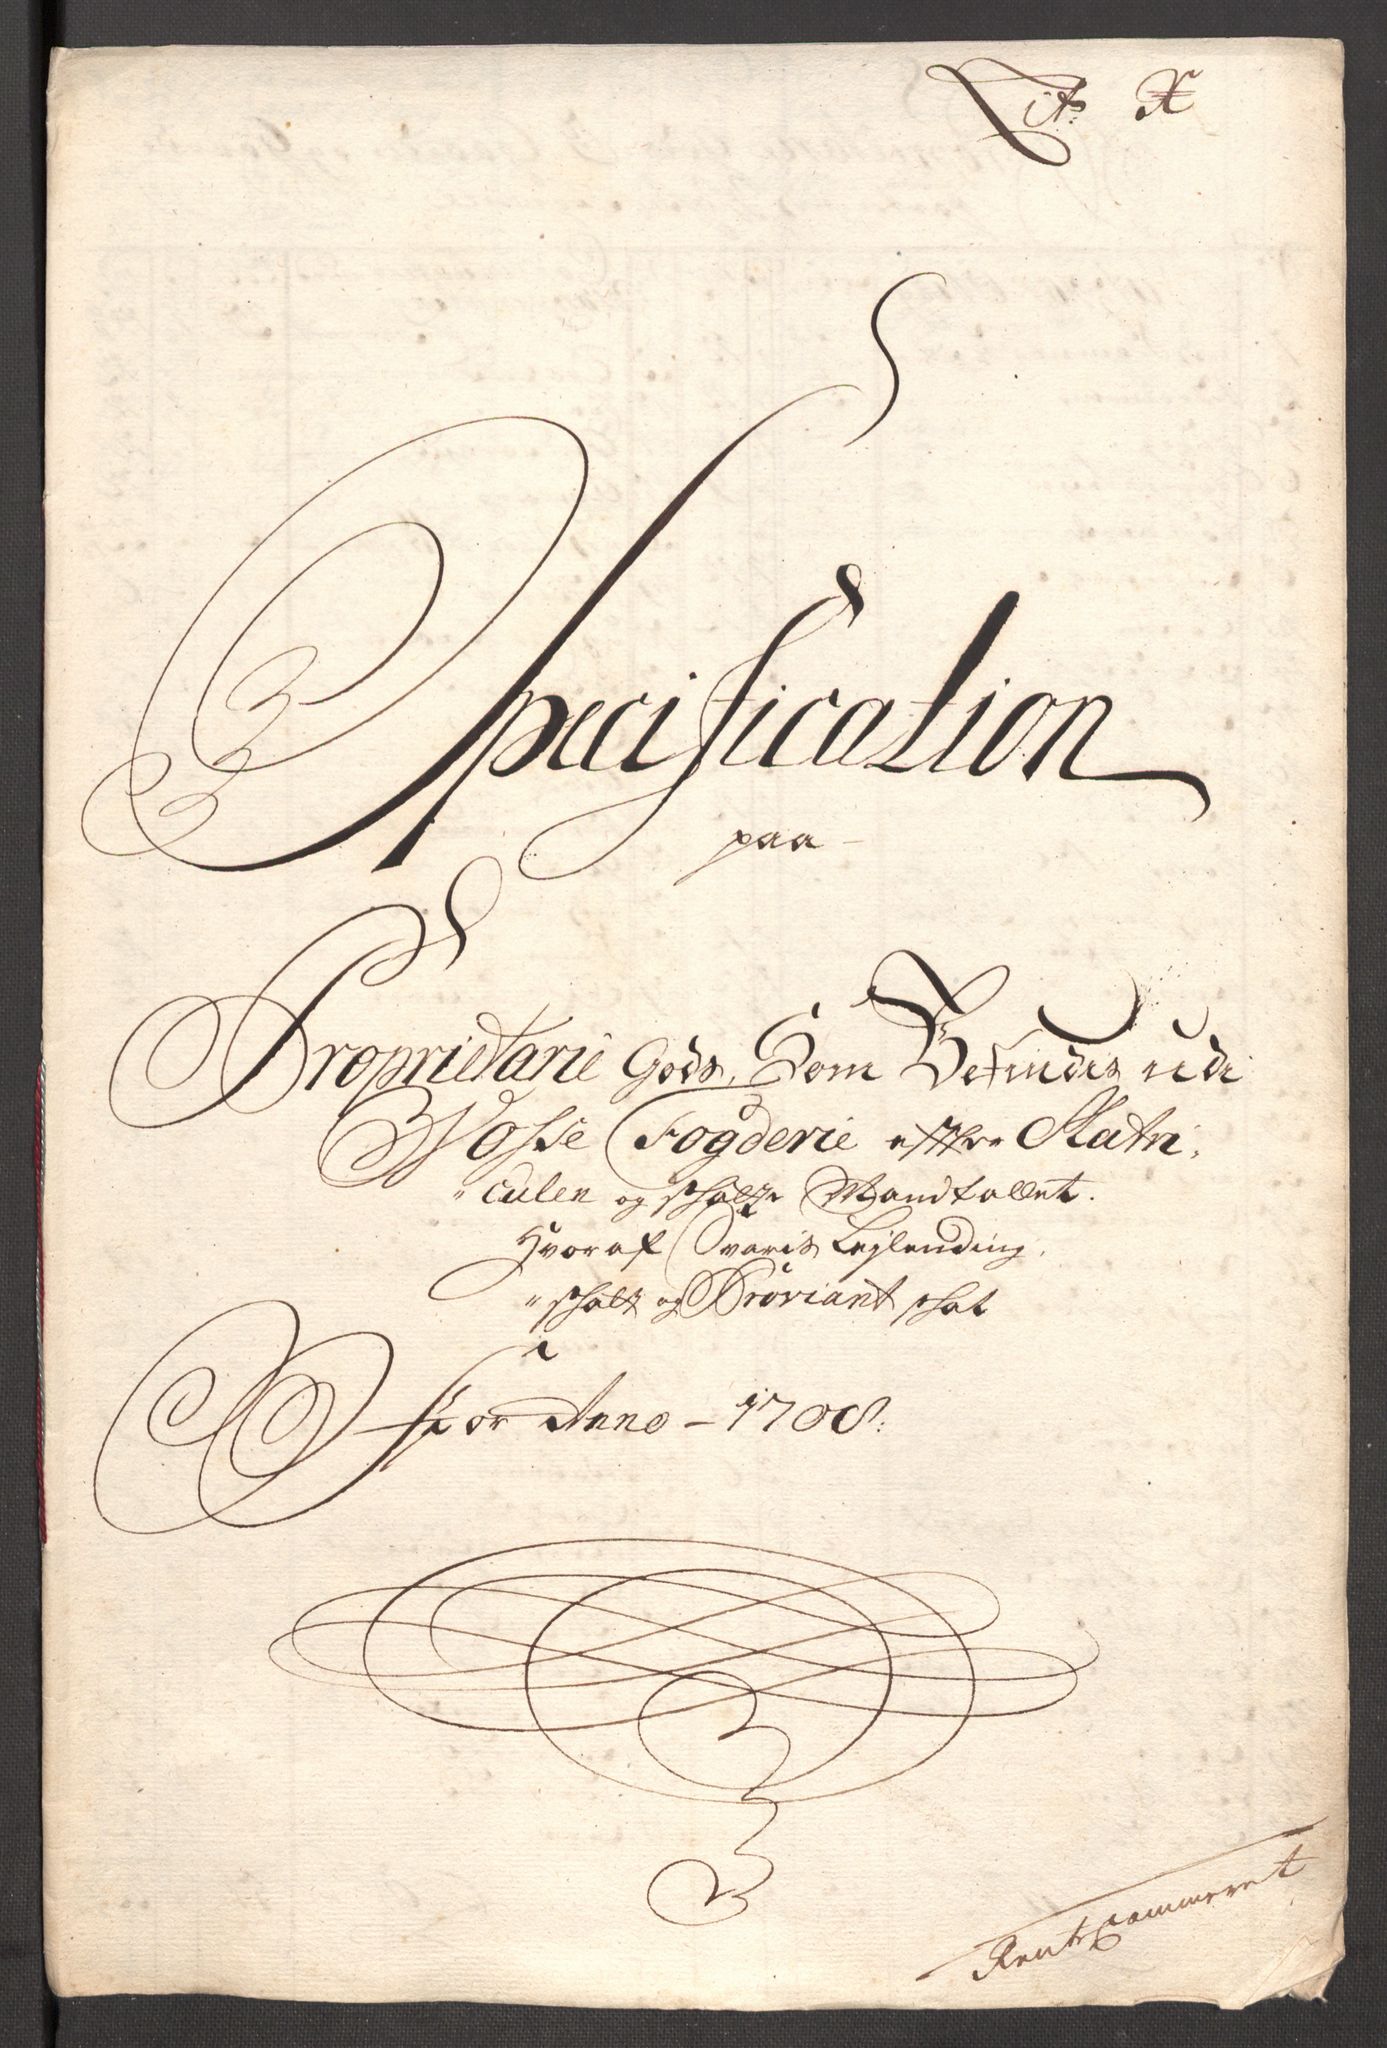 Lit: X
Specification
paa
Proprietarie Gods, Som Befindes udi
Vosse Fogderie efter Matri,
"culen og schatte Mandtallet.
Hvoraf Svaris Lejlending,
"schatt og Proviant schat
For Anno - 1708.
RenteCammeret